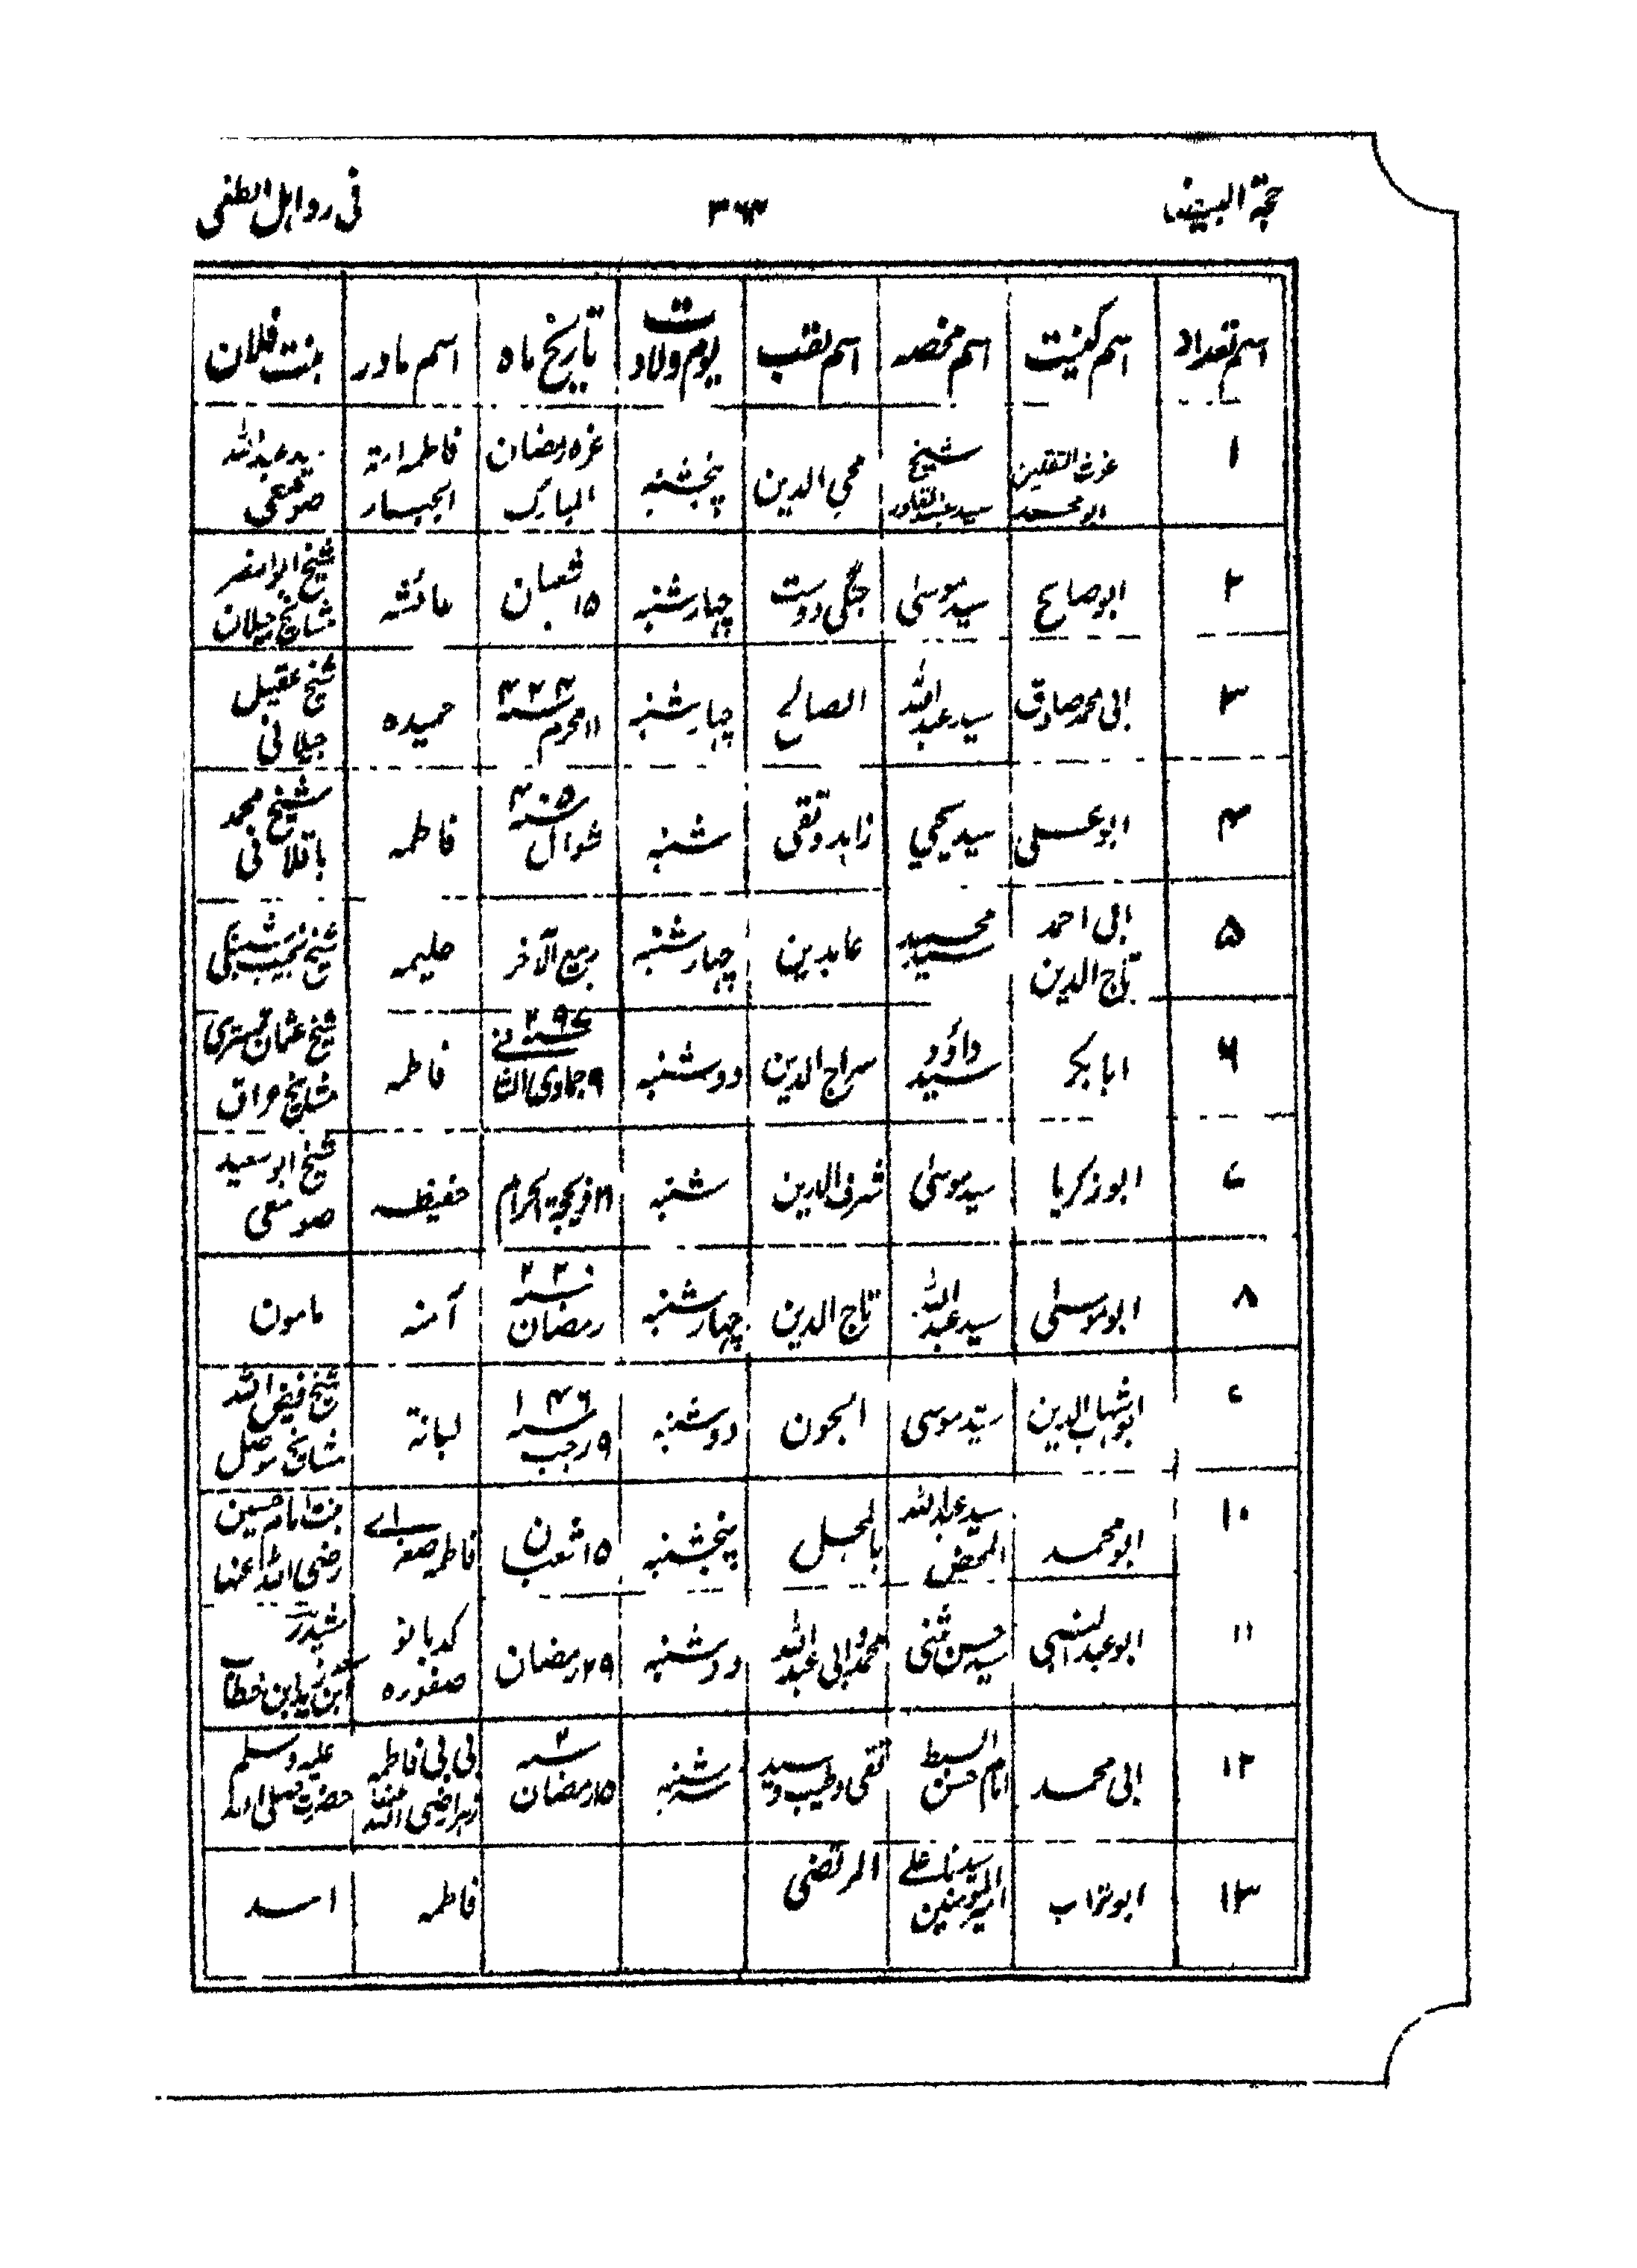 حجۃ البیضا ۳۶۳ فی رد اہل الطغی
اسم تعداد | اسم کنیت | اسم مخصہ | اسم لقب | یوم ولادت | تاریخ ماہ | اسم مادر | بنت فلان
۱ | غوث الثقلین ابو محمد | شیخ سید عبدالقادر | محی الدین | پنجشنبہ | غرہ رمضان المبارک | فاطمہ امۃ الجبار | عبداللہ صومعی
۲ | ابو صالح | سید موسیٰ | جنگی دوست | چہارشنبہ | ۱۵ شعبان | عائشہ | شیخ مشایخ جیلان
۳ | ابی محمد صادق | سید عبداللہ | الصالح | چہارشنبہ | ۱۱ محرم | حمیدہ | شیخ عقیل جیلانی
۴ | ابو عسلی | سید یحیی | زاہد و تقی | شنبہ | ۴۰۵ سنہ شوال | فاطمہ | شیخ محمد باقلانی
۵ | ابی احمد تاج الدین | سید محمد | عابدین | چہارشنبہ | ربیع الآخر | حلیمہ | شیخ نجیب
۶ | ابا بکر | سید داؤد | سراج الدین | دوشنبہ | ۲۹۷ ۹ جمادی الثانی | فاطمہ | شیخ عثمان مشایخ عراق
۷ | ابو زکریا | سید موسیٰ | شرف الدین | شنبہ | ذیحجۃ الحرام | حفیظہ | شیخ ابو سعید صومعی
۸ | ابو موسیٰ | سید عبداللہ | تاج الدین | چہارشنبہ | ۲۲۰ سنہ رمضان | آمنہ | مامون
۹ | ابو شہاب الدین | سیّد موسی | الجون | دوشنبہ | ۱۴۶ سنہ ۹ رجب | لبانۃ | شیخ فیض اللہ مشایخ موصل
۱۰ | ابو محمد | سید عبداللہ المحض | بالمجل | پنجشنبہ | ۱۵ شعبان | فاطمہ صغرای | بنت امام حسین رضی اللہ عنہا
۱۱ | ابو عبد النبی | سید حسن مثنی | محمد و ابی عبداللہ | دوشنبہ | ۲۹ رمضان | کدبانو صفورہ | ابن زید ابن خطاب
۱۲ | ابی محمد | السبط امام حسن | تقی و طیب و سید | سہ شنبہ | ۱۵ رمضان | بی بی فاطمہ زہرا رضی اللہ عنہا | حضرت صلی اللہ علیہ وسلم
۱۳ | ابو تراب | سیدنا علے امیر المومنین | المرتضی | فاطمہ | اسد